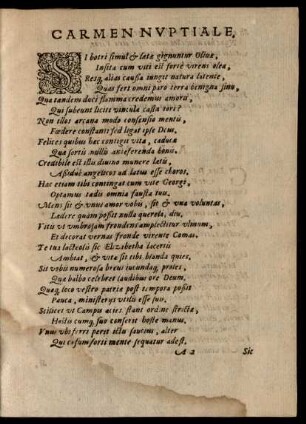 CARMEN NVPTIALE,
SI botri simul & sete gignuntur Oliuæ,
Insita cum viti est fortè virens olea,
Resq; alias caussa iungit natura latente,
Quas fert omni paro terra benigna sinu,
Qua tandem duci flamma credemus amoris,
Qui subeunt liciti vincula casta tori?
Non illos arcana modo consensio mentis,
Fœdere constanti sed legat ipse Deus,
Felices quibus hæc contigit vita, caducæ
Quæ sortis nullis anteferenda bonis.
Credibile est illis diuino munere latis,
Assiduè angelicos ad latus esse choros,
Hæc etiam tibi contingat cum vite Georgi,
Optamus tædis omnia fausta tuis,
Mens sit & vnus amor vobis, sit & vna voluntas,
Lædere quam possit nulla querela, diu,
Vitis vt vmbrosam frondens amplectitur vlmum,
Et decorat vernas fronde virente Comas.
Te tuus lacteolis sic Elizabetha lacertis
Ambiat, & vitæ sit tibi blanda quies,
Sit vobis numerosa breui iucundaq; proles,
Quæ balbo celebret laudibus ore Deum,
Quæq; loco vestro patriæ post tempora possit
Pauca, ministerijs vtilis esse suis.
Scilicet vt Campis acies stant ordine strictæ,
Hostis cumq; suo conserit hoste manus,
Vnus vbi ferri perit ictu saucius, alter
Qui consumforti mente sequatur adest,
A 2 Sic